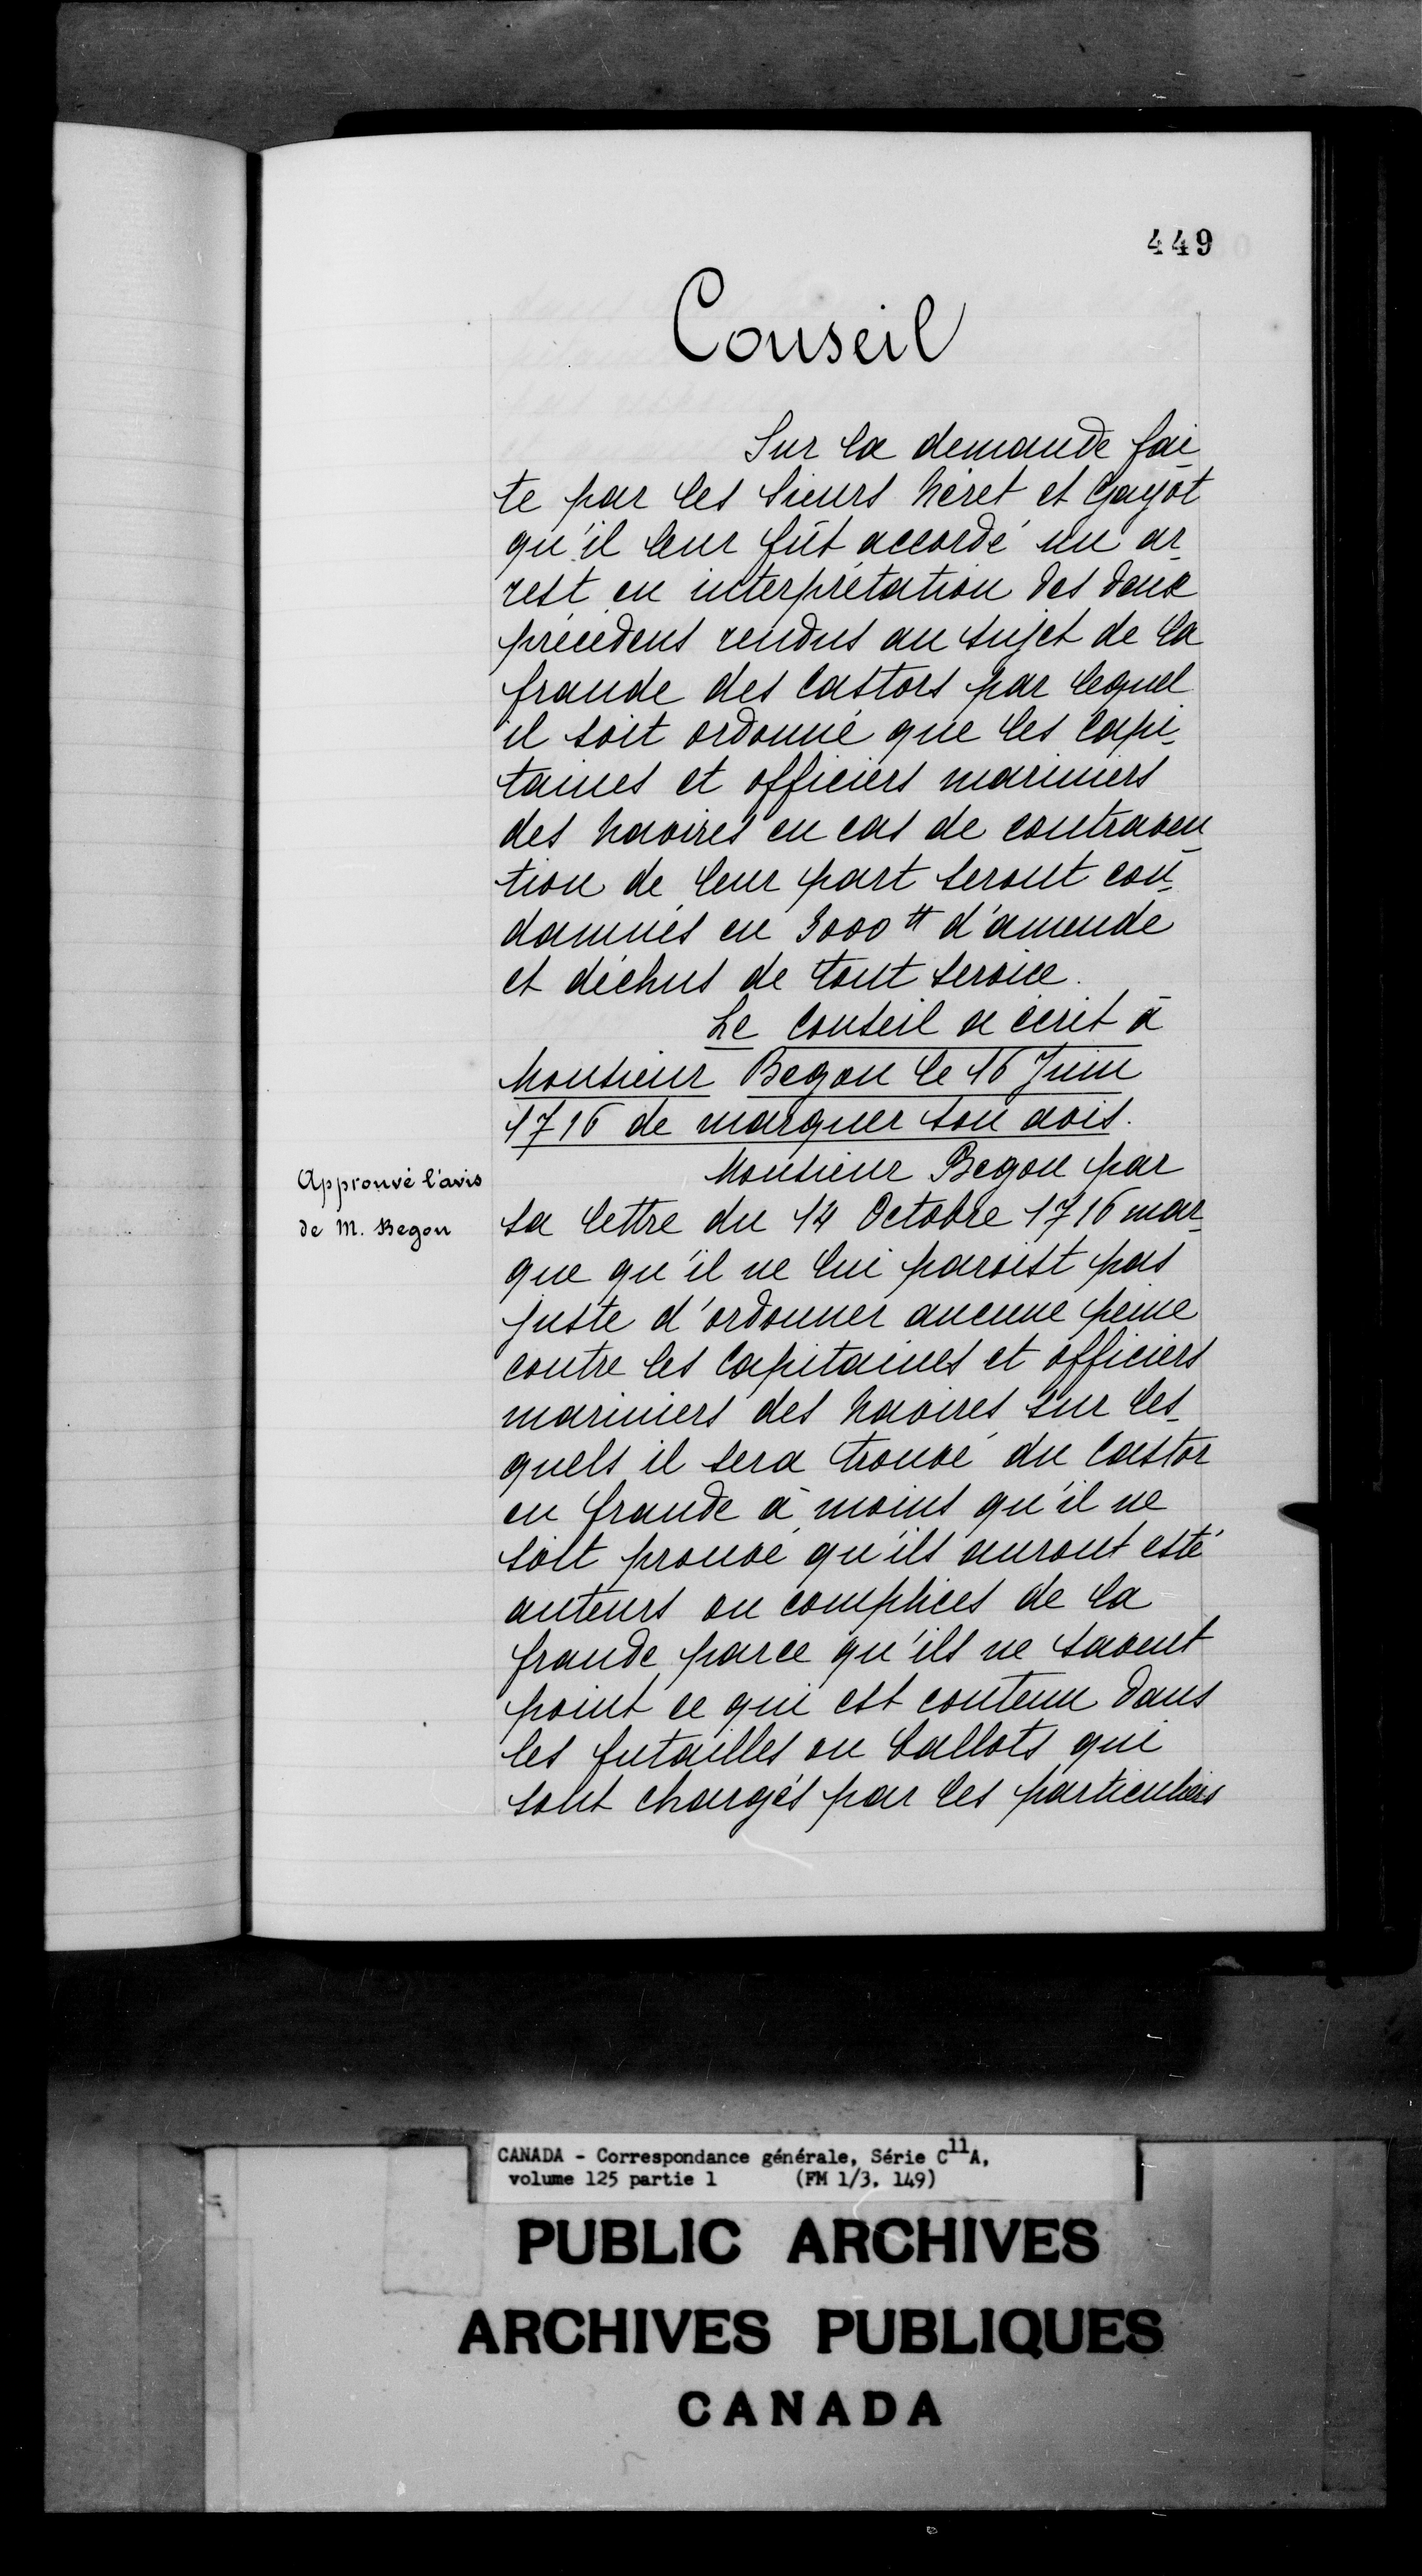 449
Conseil
Sur la demande fai-
te par les Sieurs Néret et Gayot
qu'il leur fût accordé un ar-
rest en interprétation des deux
précédens rendus au sujet de la
fraude des Castors par lequel
il soit ordonné que les Capi-
taines et officiers mariniers
des Navires en cas de contraven-
tion de leur part seront con-
damnés en 3000 ₶ d'amende
et déchus de tout service.
Le Conseil a écrit à
Monsieur Begon le 16 Juin
1716 de marquer son avis.
Approuvé l'avis
de M. Begon
Monsieur Begon par
sa lettre du 14 Octobre 1716 mar-
que qu'il ne lui paroist pas
juste d'ordonner aucune peine
contre les Capitaines et officiers
mariniers des Navires sur les-
quels il sera trouvé du Castor
en fraude à moins qu'il ne
soit prouvé qu'ils auront esté
auteurs ou complices de la
fraude parce qu'ils ne savent
point ce qui est contenu dans
les futailles ou ballots qui
sont chargés par les particuliers
CANADA - Correspondance générale, Série C11A,
volume 125 partie 1 (FM 1/3. 149)
PUBLIC ARCHIVES
ARCHIVES PUBLIQUES
CANADA